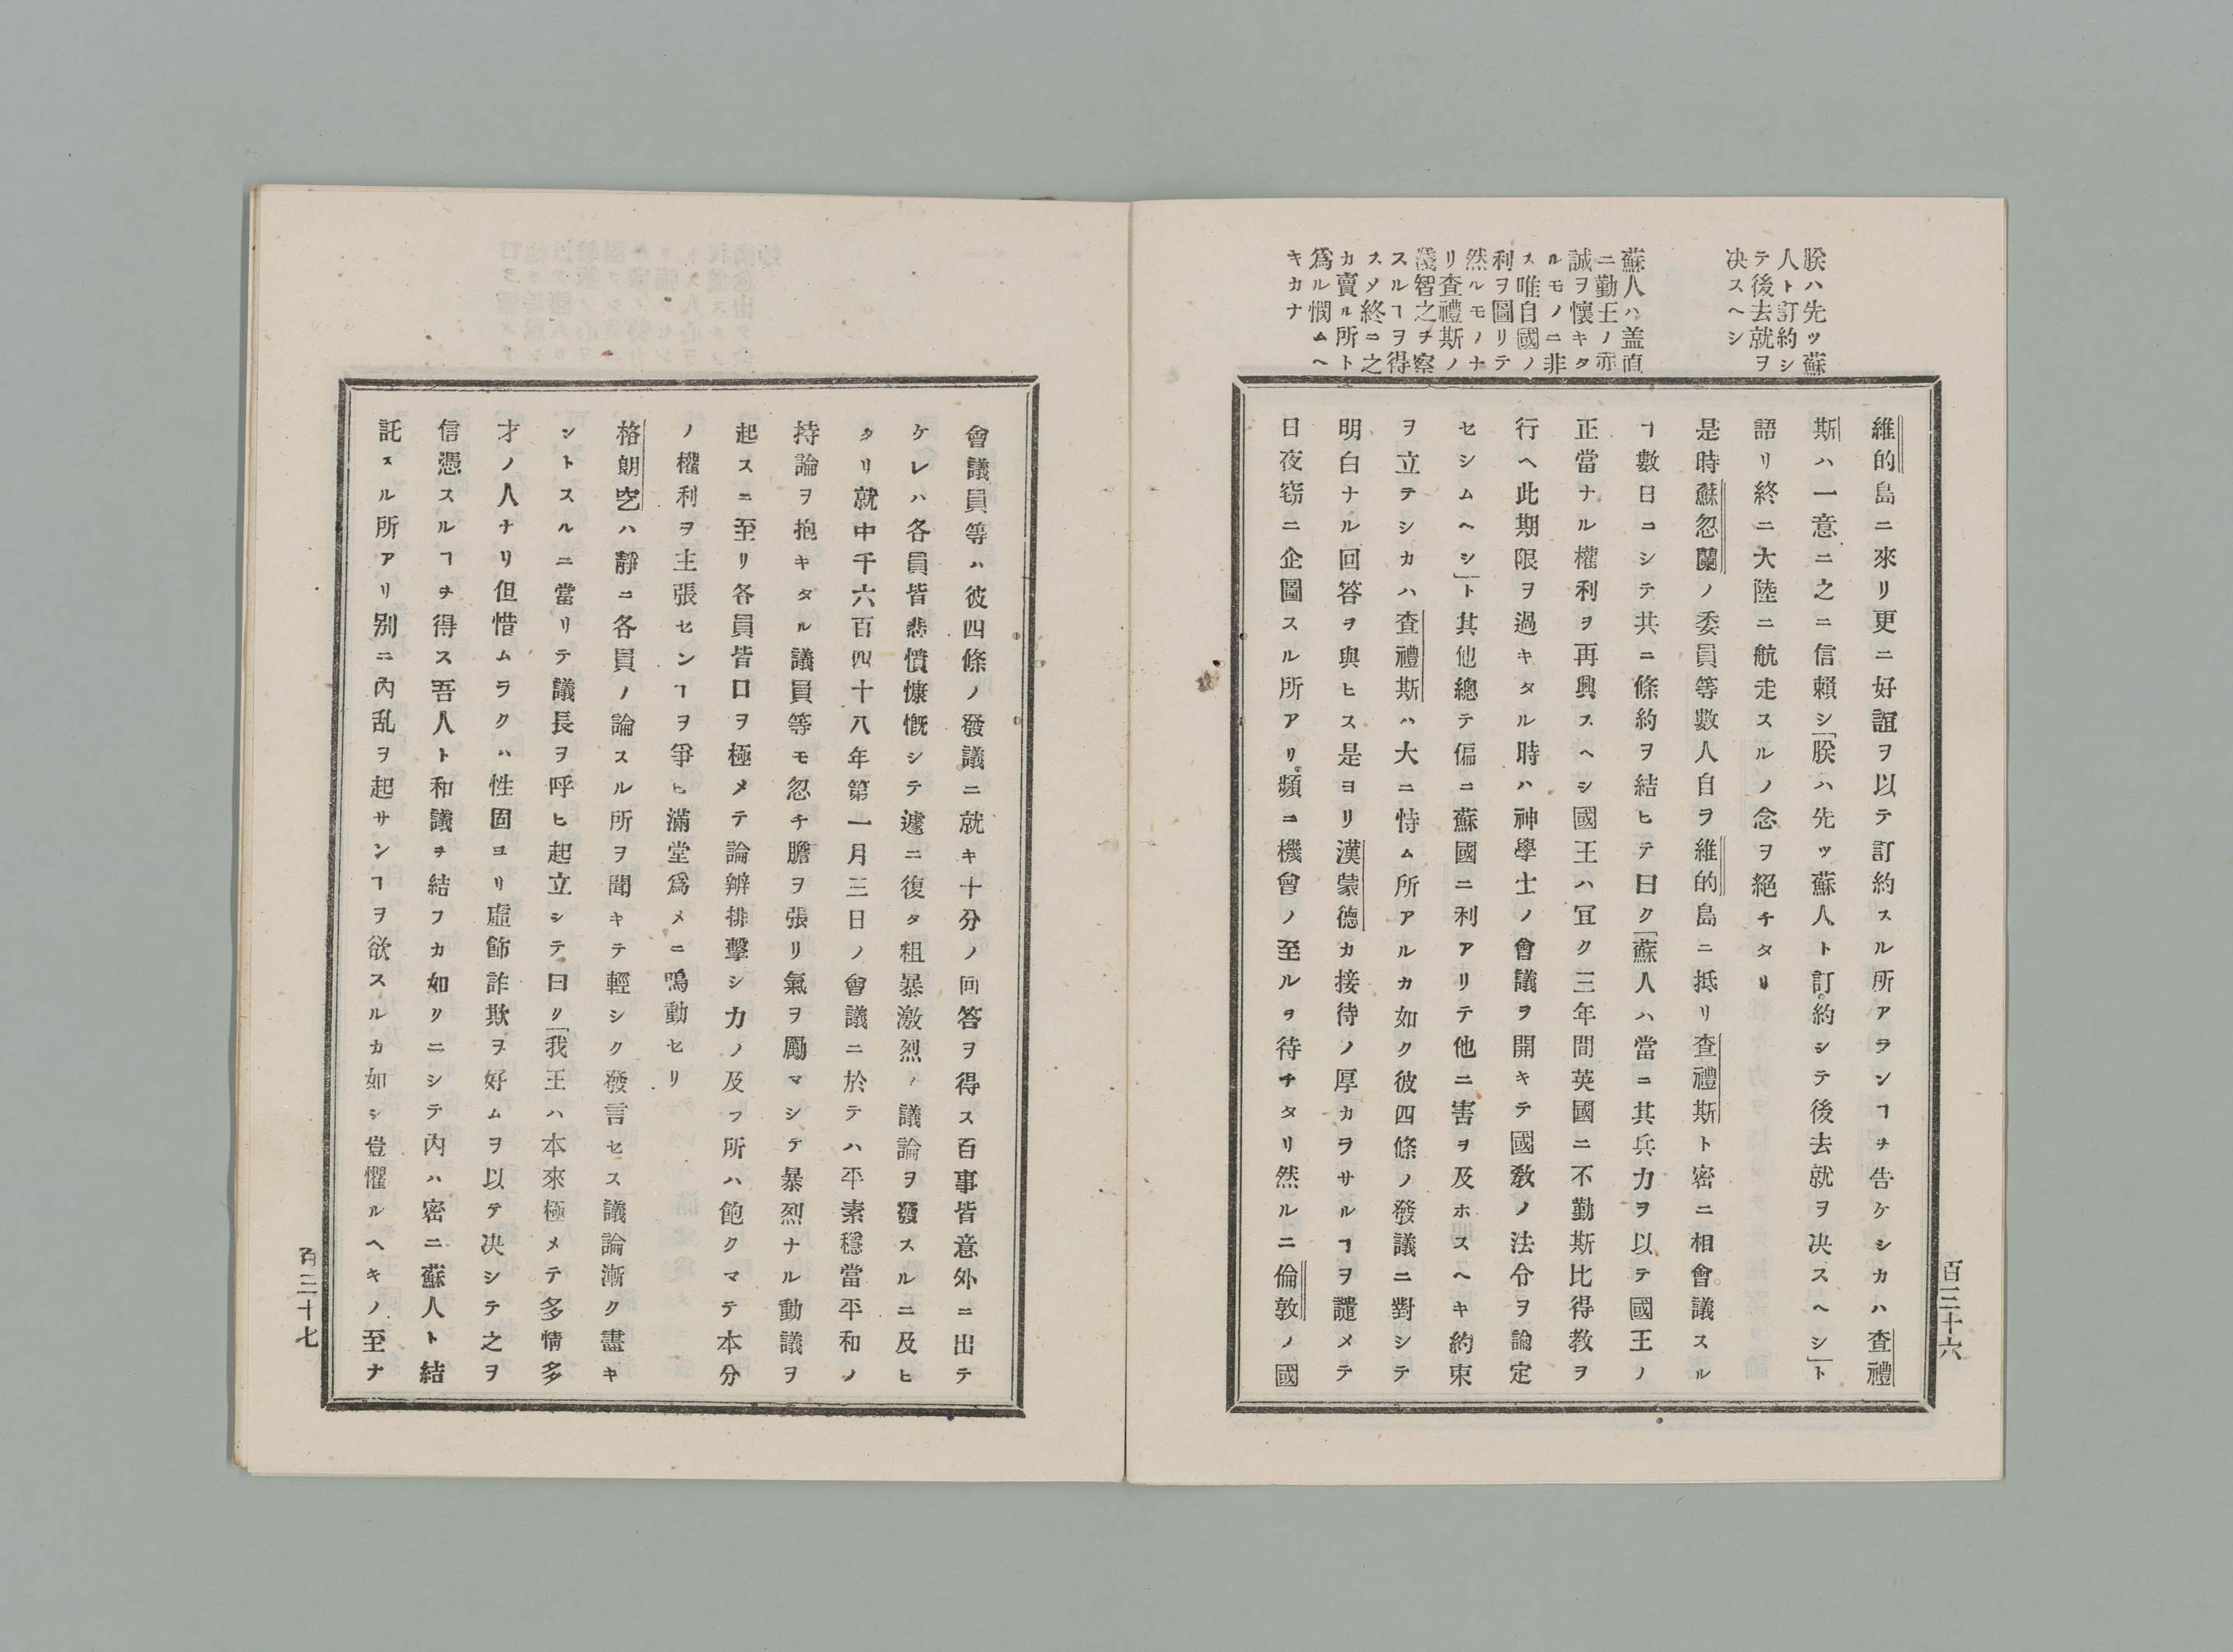 朕ハ先ッ蘇
人ト訂約シ
テ後去就ヲ
決スヘシ
蘇人ハ盖直
ニ勤王ノ亦
誠ヲ懷キタ
ルモノニ非
ス唯自國ノ
利ヲ圖リテ
然ルモノナ
リ査禮斯ノ
淺智之チ察
スルヿヲ得
スソ終ニ之
カ賣ル所ト
爲ル憫ムヘ
キカナ
維的島ニ來リ更ニ好誼ヲ以テ訂約スル所アランヿチ告ケシカハ査禮
斯ハ一意ニ之ニ信賴シ「朕ハ先ッ蘇人ト訂約シテ後去就ヲ決スヘシ」ト
語リ終ニ大陸ニ航走スルノ念ヲ絕チタリ
是時蘇忽蘭ノ委員等數人自ヲ維的島ニ抵リ査禮斯ト密ニ相會議スル
ヿ數日コシテ共ニ條約ヲ結ヒテ曰ク「蘇人ハ當ニ其兵力ヲ以テ國王ノ
正當ナル權利ヲ再興スヘシ國王ハ宜ク三年間英國ニ不勤斯比得敎ヲ
行ヘ此期限ヲ過キタル時ハ神學士ノ會議ヲ開キテ國敎ノ法令ヲ論定
セシムヘシ」ト其他總テ偏ニ蘇國ニ利アリテ他ニ害ヲ及ホスヘキ約束
ヲ立テシカハ査禮斯ハ大ニ恃ム所アルカ如ク彼四條ノ發議ニ對シテ
明白ナル回答ヲ與ヒス是ヨリ漢蒙德カ接待ノ厚カラサルヿヲ譴メテ
日夜窃ニ企圖スル所アリ頻ニ機會ノ至ルヲ待チタリ然ルニ倫敦ノ國
百三十六
會議員等ハ彼四條ノ發議ニ就キ十分ノ回答ヲ得ス百事皆意外ニ出テ
ケレハ各員皆悲憤慷慨シテ遽ニ復タ粗暴激烈ノ議論ヲ發スルニ及ヒ
タリ就中千六百四十八年第一月三日ノ會議ニ於テハ平素穩當平和ノ
持論ヲ抱キタル議員等モ忽チ膽ヲ張リ氣ヲ勵マシテ暴烈ナル動議ヲ
起スニ至リ各員皆口ヲ極メテ論辨排擊シ力ノ及フ所ハ飽クマテ本分
ノ權利ヲ主張センヿヲ爭ヒ滿堂爲メニ鳴動セリ
格朗空ハ靜ニ各員ノ論スル所ヲ聞キテ輕シク發言セス議論漸ク盡キ
ントスルニ當リテ議長ヲ呼ヒ起立シテ曰ク「我王ハ本來極メテ多情多
才ノ人ナリ但惜ムラクハ性固ヨリ虛飾詐欺ヲ好ムヲ以テ決シテ之ヲ
信憑スルヿチ得ス吾人ト和議チ結フカ如クニシテ內ハ密ニ蘇人ト結
託スル所アリ別ニ內乱ヲ起サンヿヲ欲スルカ如シ豈懼ルヘキノ至ナ
百三十七